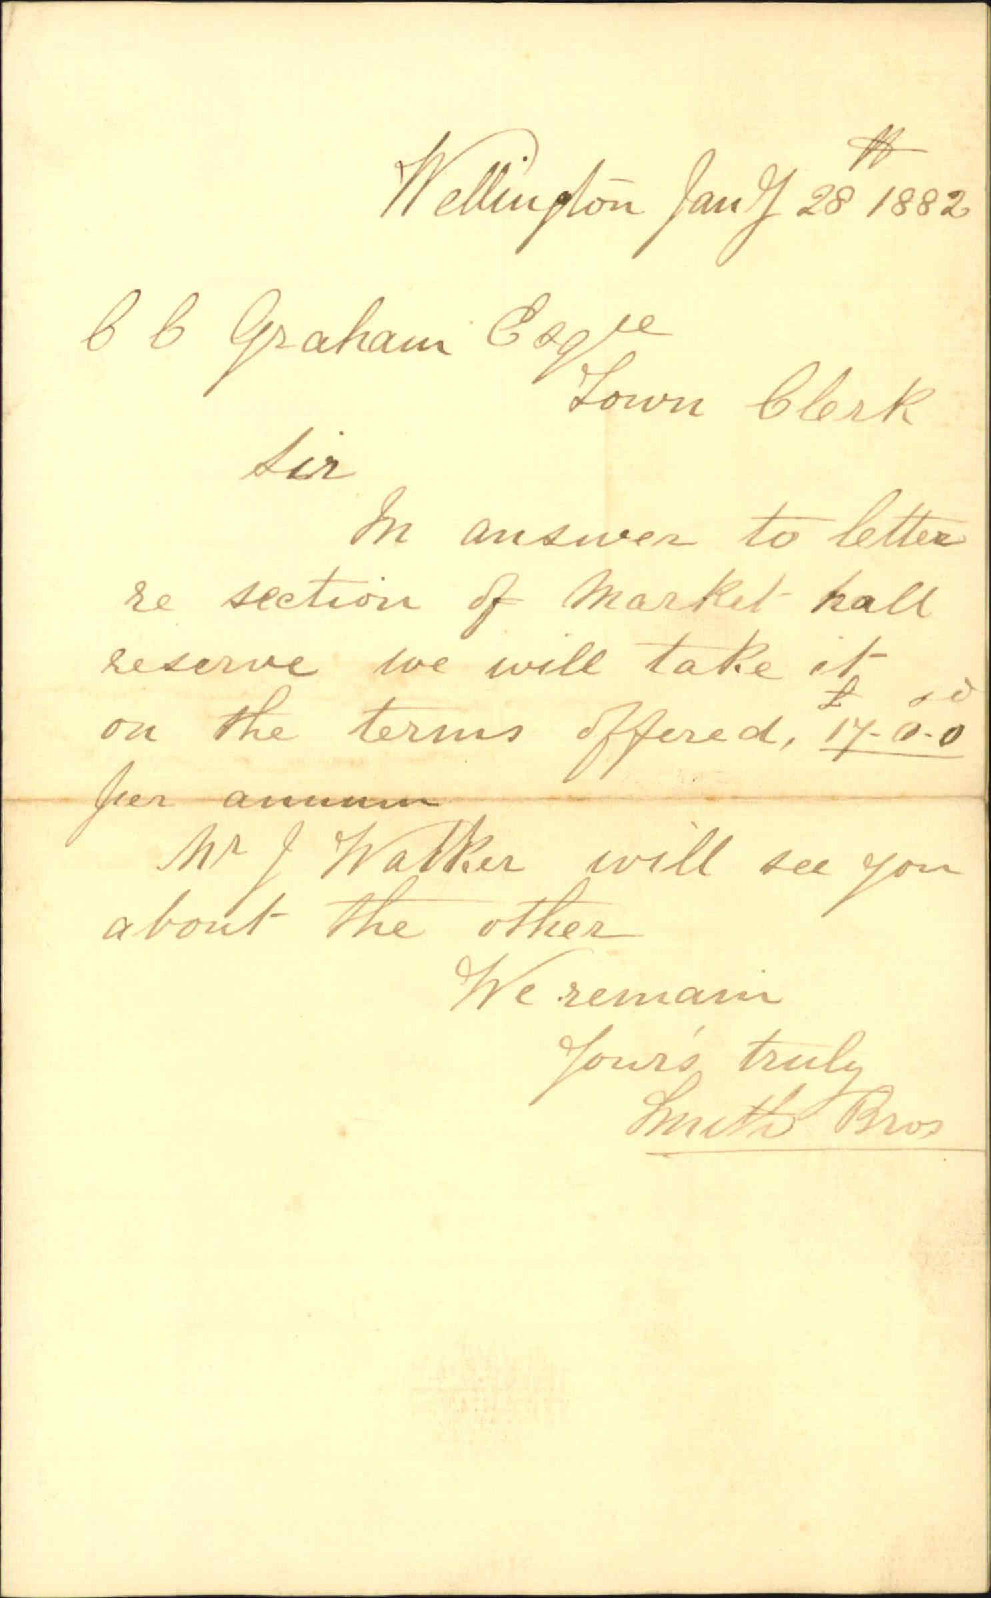 Wellington Jany 28th 1882
C C Graham Esqre
Town Clerk
Sir
In answer to letter
re section of Market hall
reserve we will take it
on the terms offered, £17-0s-0d
per annum
Mr J Walker will see you
about the other
We remain
Your's truly
Smith Bros